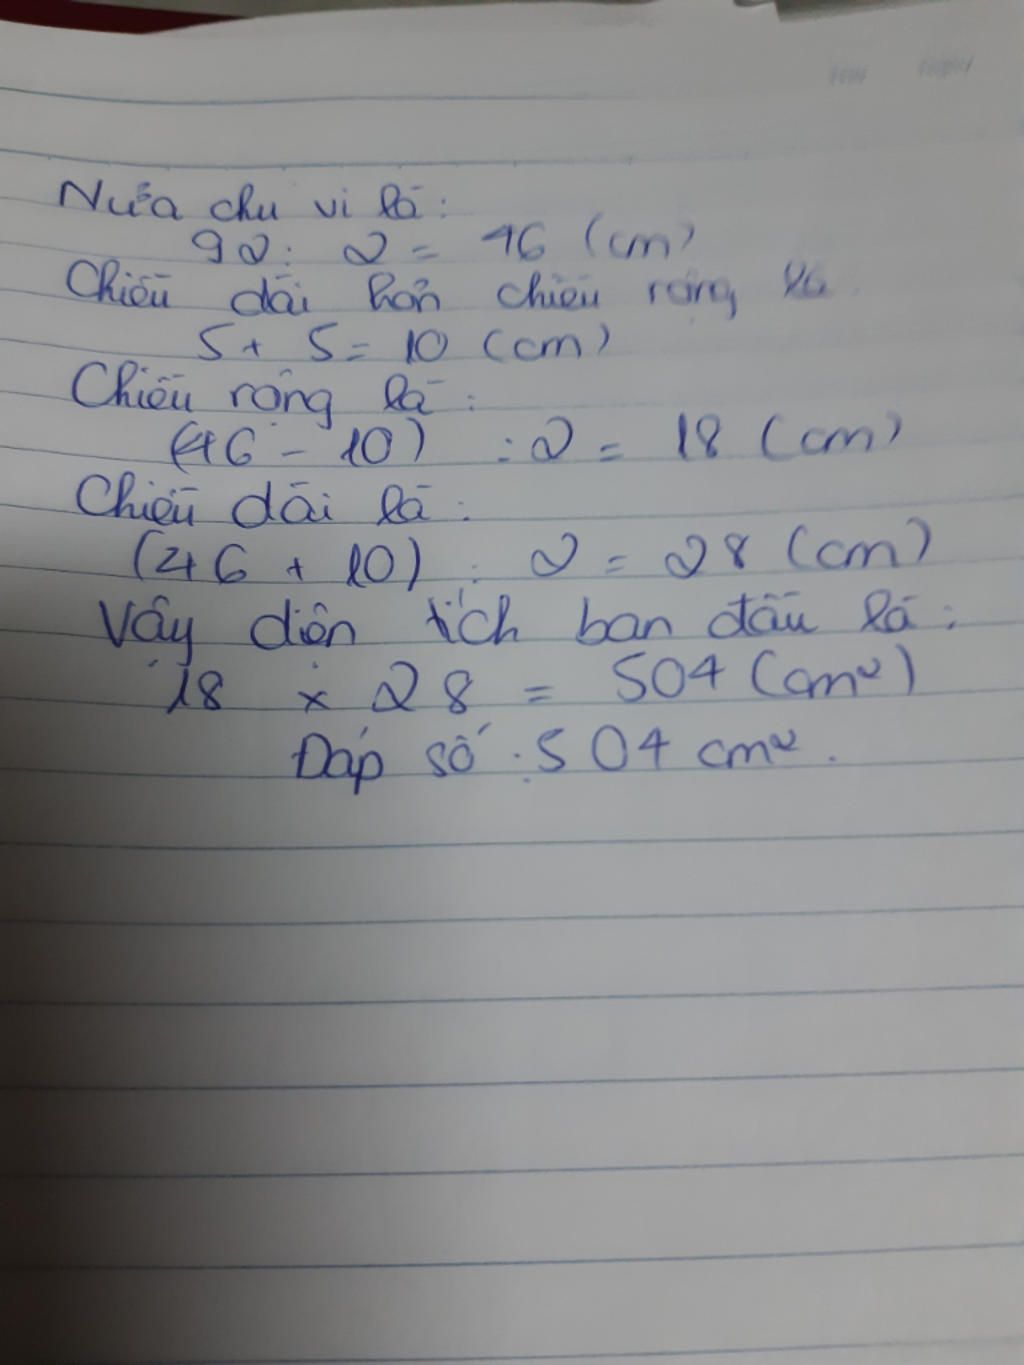 Nửa chu vi là:
92 : 2 = 46 (cm)
Chiều dài hơn chiều rộng là
5 + 5 = 10 (cm)
Chiều rộng là :
(46 - 10) : 2 = 18 (cm)
Chiều dài là :
(46 + 10) : 2 = 28 (cm)
Vậy diện tích ban đầu là :
18 x 28 = 504 (cm²)
Đáp số : 504 cm².